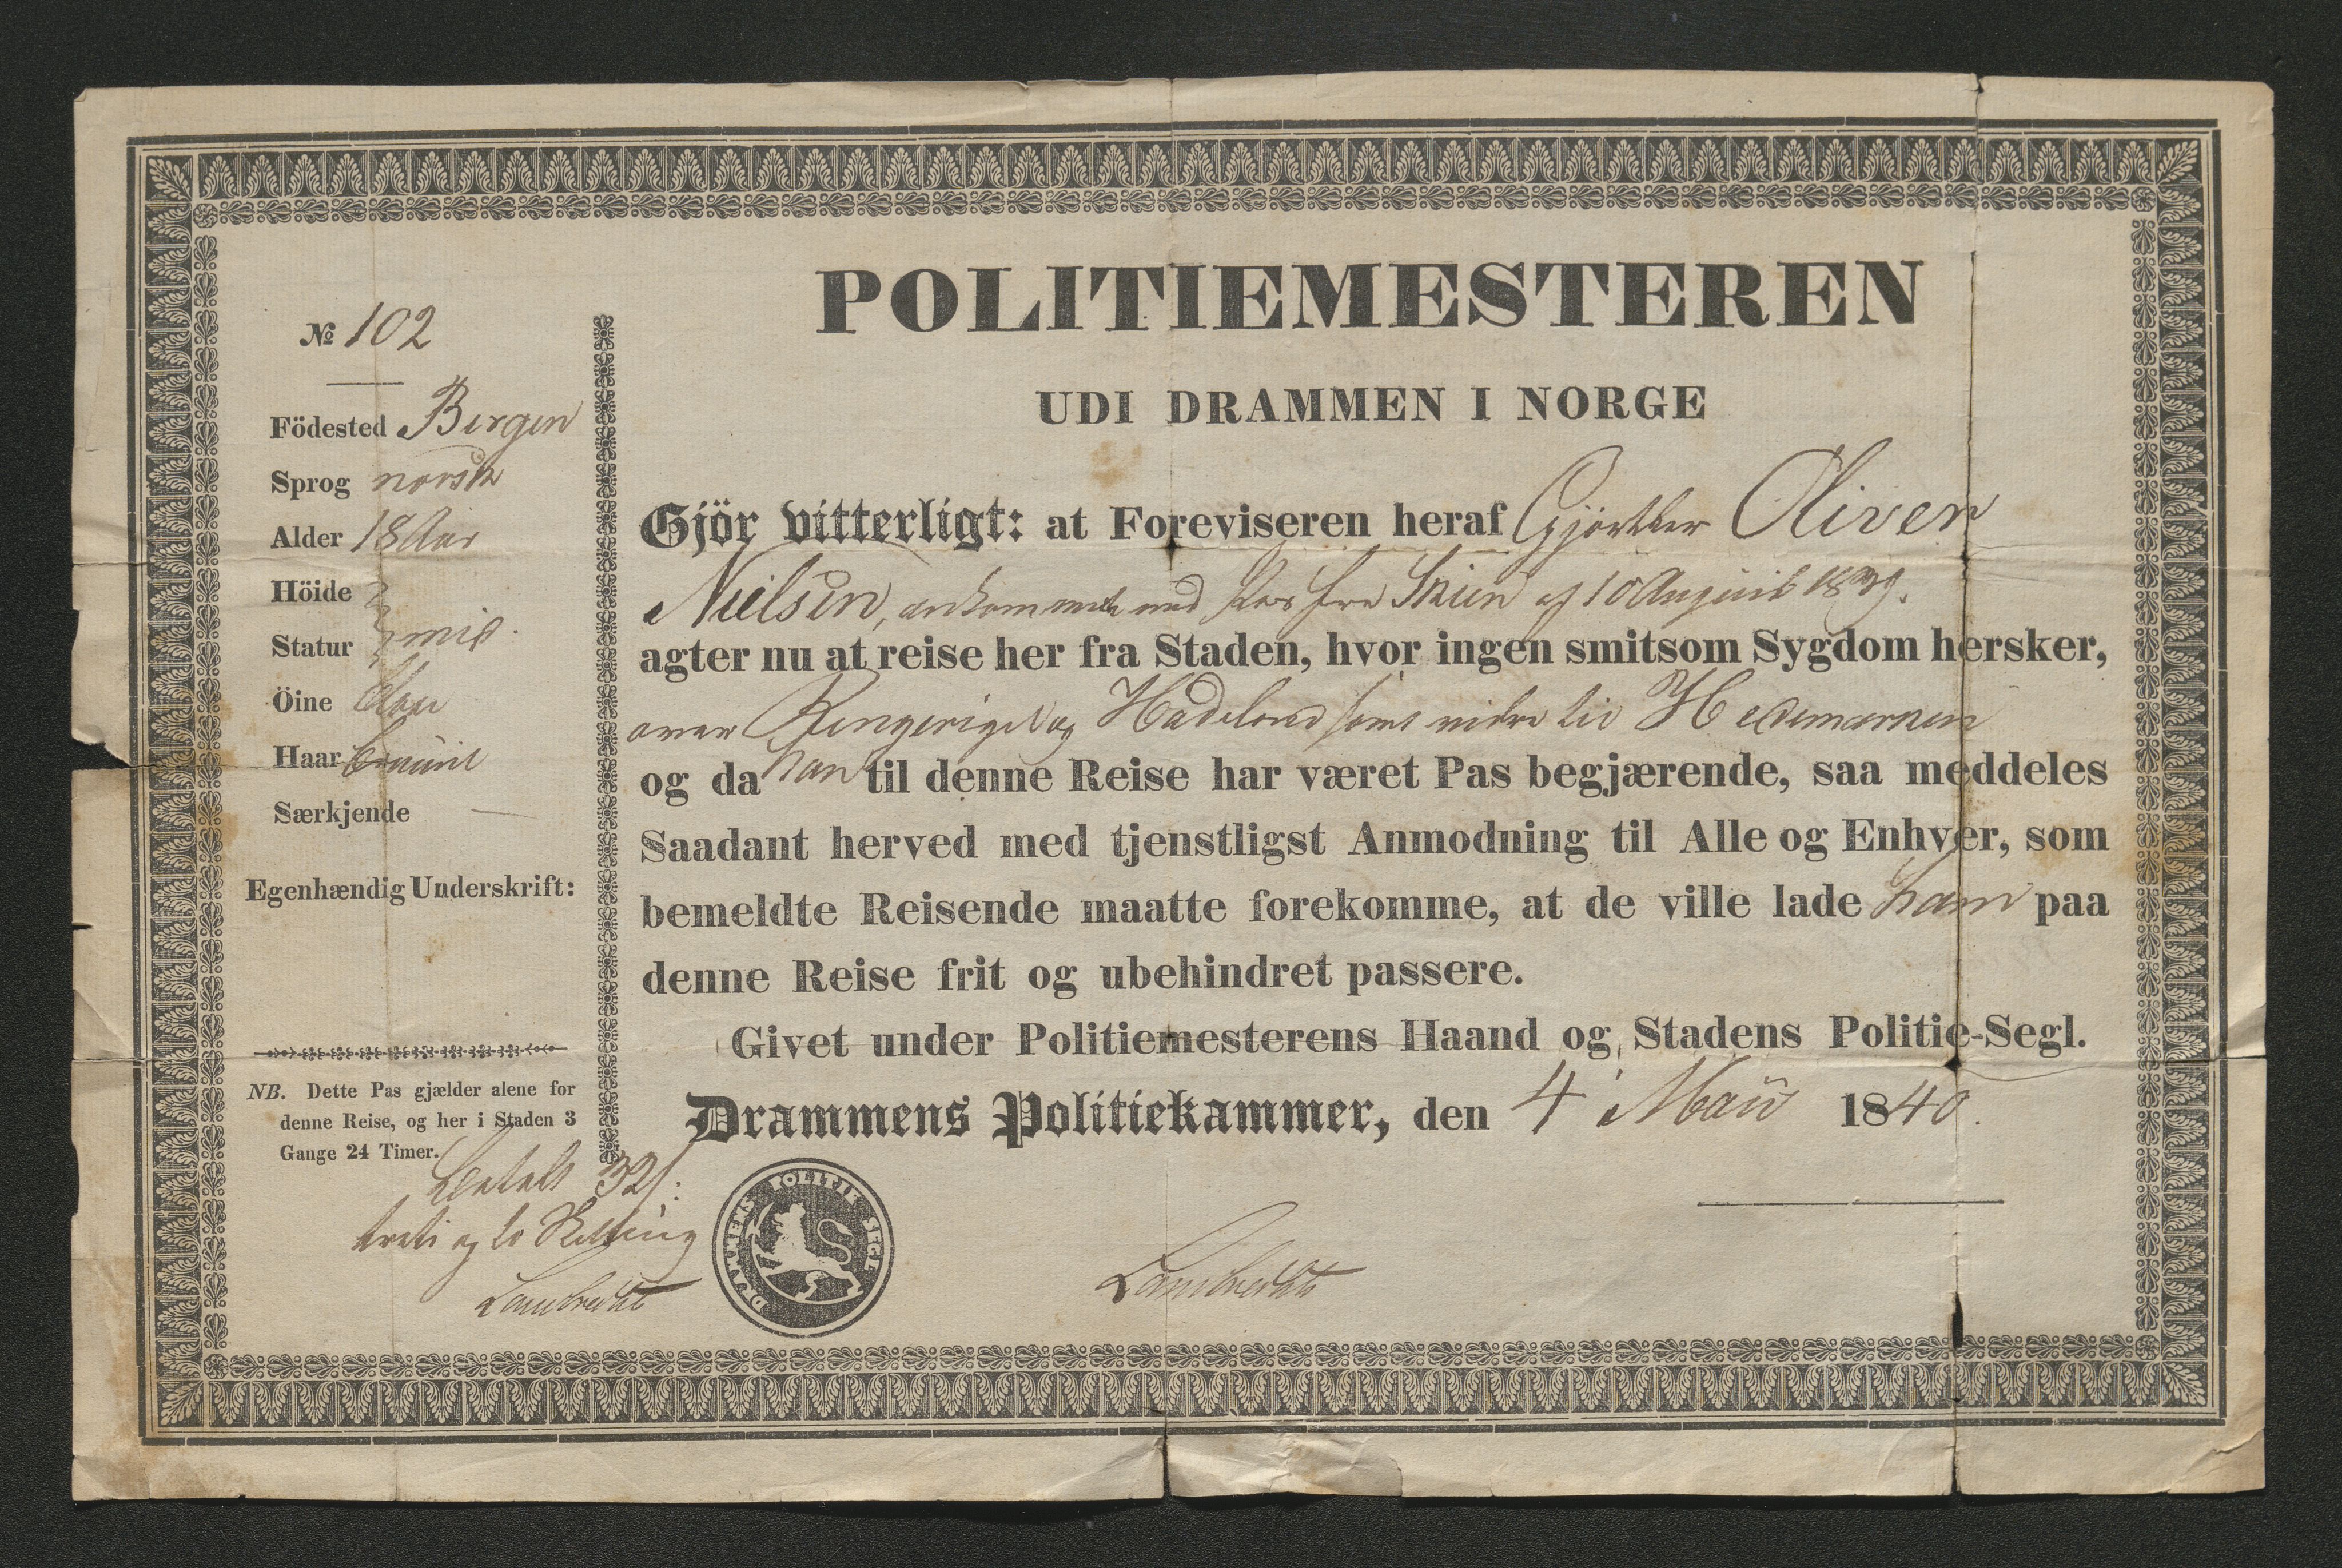 № 102
Födested Bergen
Sprog norsk
Alder 18 Aar
Höide
Statur mid.
Öine blau
Haar bruunt
Særkjende —
Egenhændig Underskrift:
NB. Dette Pas gjælder alene for
denne Reise, og her i Staden 3
Gange 24 Timer.
betalt 32 s:
treti og to Skilling
Lambrechts
POLITIEMESTEREN
UDI DRAMMEN I NORGE
Gjör vitterligt: at Foreviseren heraf Gjørtler Oliver
Nielsen, ankommen med Pas fra Skien af 10 August 1839.
agter nu at reise her fra Staden, hvor ingen smitsom Sygdom hersker,
over Ringeriget og Hadeland samt videre til Hedemarken
og da han til denne Reise har været Pas begjærende, saa meddeles
Saadant herved med tjenstligst Anmodning til Alle og Enhver, som
bemeldte Reisende maatte forekomme, at de ville lade ham paa
denne Reise frit og ubehindret passere.
Givet under Politiemesterens Haand og Stadens Politie-Segl.
Drammens Politiekammer, den 4 Maii 1840.
DRAMMENS POLITIK SIGEL
Lambrechts